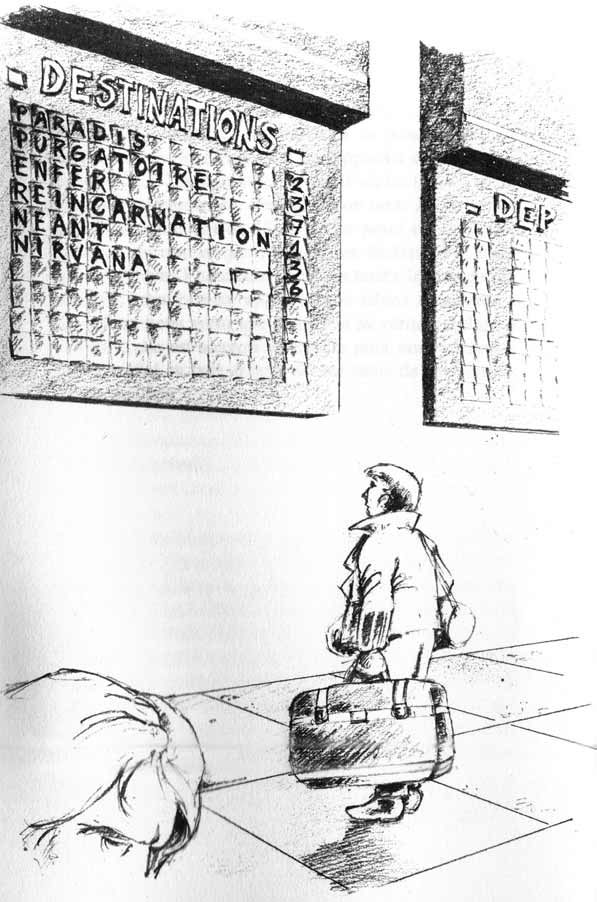 DESTINATIONS
PARADIS 2
PURGATOIRE 3
ENFER 7
REINCARNATION 4
NEANT 3
NIRVANA 6
DEP